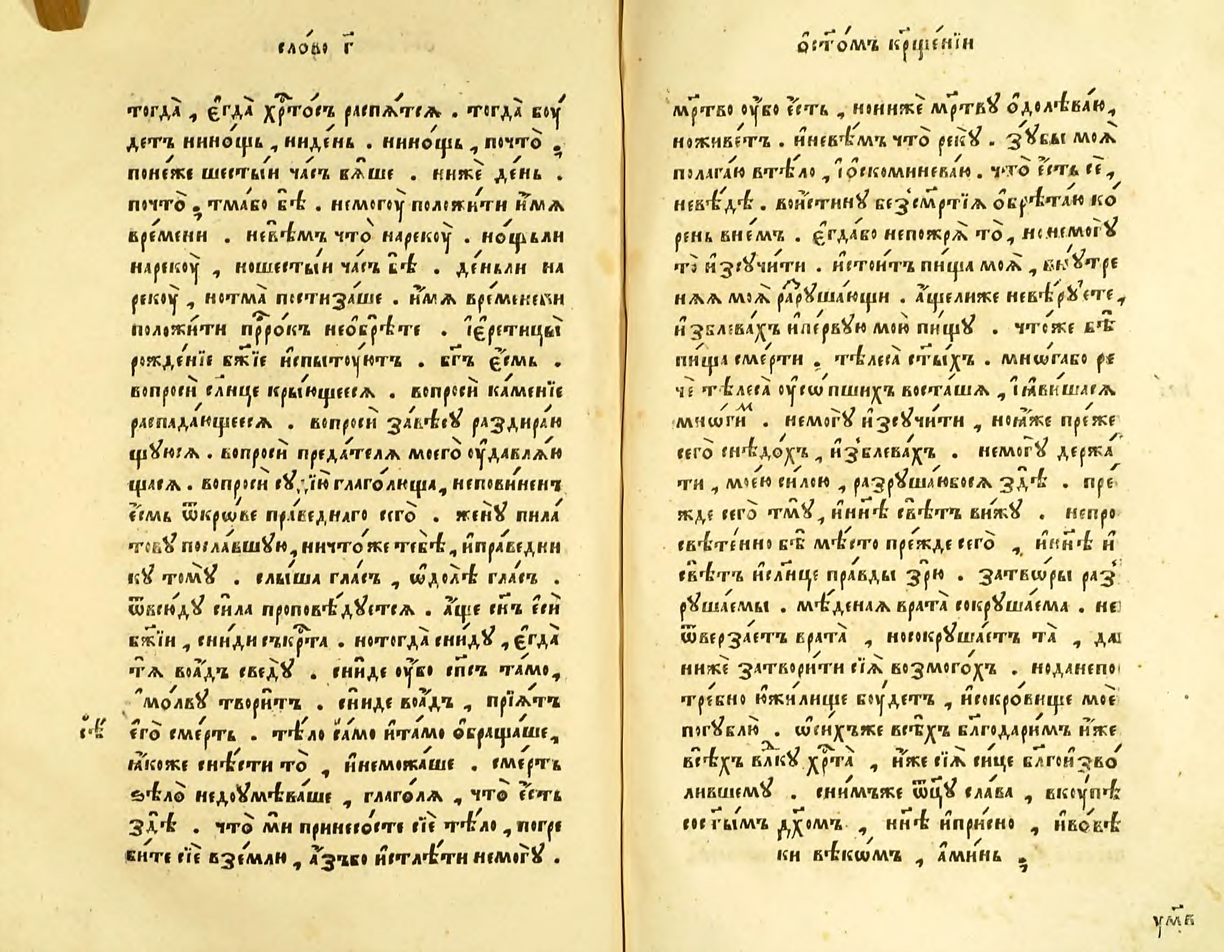 сло́во г҃
тогда̀ , є҆гда̀ хр҇то́съ распѧ́тсѧ . тогда̀ боу́
детъ нино́щь , нидѐнь . нино́щь , почто̀ ;
поне́же шесты́и ча́съ бѧ́ше . нижѐ де́нь .
почто̀ ; тма́бо бѣ̀ . немогоу̀ положи́ти и҆́мѧ
вре́мени . невѣ́мъ что̀ нарекоу̀ . но́щьли
нарекоу̀ , ношесты́и ча́съ бѣ̀ . де́ньли на
рекоу̀ , нотма̀ пости́заше . и҆́мѧ вре́меневи
положи́ти прⷪ҇ро́къ неѡ҆брѣ́те . і҆є҆ретицы̀
рожде́нїе бж҃їе и҆спытоу́ютъ . бг҃ъ є҆́смь .
вопросѝ сл҃нце кры́ющеесѧ . вопросѝ ка́менїе
распада́ющеесѧ . вопросѝ завѣ́сꙋ раздира́ю
щуюсѧ . вопросѝ преда́телѧ моего̀ оу҆давлѧ́ю
щасѧ . вопросѝ сꙋдїю̀ глаго́люща , непови́ненъ
є҆́смь ѿкро́ве пра́веднаго сего̀ . женꙋ̀ пила́
товꙋ посла́вшую , ничто́же тебѣ̀ , и҆пра́ведни
кꙋ томꙋ̀ . слы́ша гла́съ , ѿдолѣ̀ гла́съ .
ѿвсю́дꙋ си́ла проповѣ́дꙋетсѧ . а҆́ще сн҃ъ є҆сѝ
бж҃їи , сни́ди съкр҇та̀ . нотогда̀ сни́дꙋ , є҆гда̀
тѧ̀ воа҆́дъ сведꙋ̀ . сни́де оу҆́бо сп҃съ та́мо,
молвꙋ̀ твори́тъ . сни́де воа҆́дъ , прїѧ́тъ
его̀ сме́рть . тѣ́ло са́мо и҆та́мо ѡ҆браща́ше,
ꙗ҆́коже снѣ́сти то̀ , и҆неможа́ше . сме́рть
ѕѣло̀ недоумѣва́ше , глаго́лѧ , что̀ є҆́сть
здѣ̀ . что̀ мѝ принесо́сте сїѐ тѣ́ло , погре
би́те сїѐ взе́млю , а҆́зъбо и҆стлѣ́ти немогꙋ̀ .
ѡ҆ст҃о́мъ кр҃ще́нїи
мр҃тво оу҆́бо є҆́сть , нонижѐ мр҃твꙋ ѡ҆долѣва́ю,
ноживе́тъ . и҆невѣ́мъ что̀ рекꙋ̀ . зꙋ́бы моѧ̀
полага́ю втѣ́ло , і҆ѡ҆скоминева́ю . что̀ є҆́сть сѐ,
невѣ́дѣ . вои́стину безсм҃ртїѧ ѡ҆брѣта́ю ко́
рень вне́мъ . є҆гда́бо непожрѧ̀ то̀ , нонемогꙋ̀
то̀ и҆зсꙋчи́ти . и҆стои́тъ пи́ща моѧ̀ , внꙋ́тре
нѧѧ моѧ̀ разрꙋша́ющи . а҆́щелиже невѣ́рꙋете,
и҆зблева́хъ и҆пе́рвую мою̀ пи́щꙋ . что́же бѣ̀
пи́ща сме́рти . тѣлеса̀ ст҃ы́хъ . мнѡ́габо ре
чѐ тѣлеса̀ оу҆со́пшихъ воста́шѧ , і҆ꙗ҆ви́шасѧ
мнѡ́гимъ . немогꙋ̀ и҆зсꙋчи́ти , ноꙗ҆́же пре́же
сего̀ снѣдо́хъ , и҆зблева́хъ . немогꙋ̀ держа́
ти , мое́ю си́лою , разрꙋша́юбосѧ здѣ̀ . пре́
жде сего̀ тмꙋ̀ , и҆нн҃ѣ свѣ́тъ ви́жꙋ . непро
свѣте́нно бѣ̀ мѣ́сто пре́жде сего̀ , и҆нн҃ѣ и҆
свѣ́тъ и҆сл҃нце пра́вды зрю̀ . затво́ры раз
рꙋша́емы . мѣ́денаѧ врата̀ сокрꙋша́ема . не
ѿверза́етъ врата̀ , носокрꙋша́етъ та̀ , да
нижѐ затвори́ти сїѧ̀ возмого́хъ . ноданепо
тре́бно ю҆жили́ще боу́детъ , и҆сокро́вище моѐ
погꙋблю̀ . ѡ҆си́хъже всѣ́хъ бл҃годари́мъ и҆́же
всѣ́хъ влⷣкꙋ хр҇та̀ , и҆́же сїѧ̀ си́це бл҃гоизво́
лившемꙋ . сни́мъже ѿц҃ꙋ сла́ва , вкоу́пѣ
сост҃ы́мъ дх҃омъ , нн҃ѣ и҆при́сно , и҆вовѣ́
ки вѣкѡ́мъ , а҆ми́нь ;